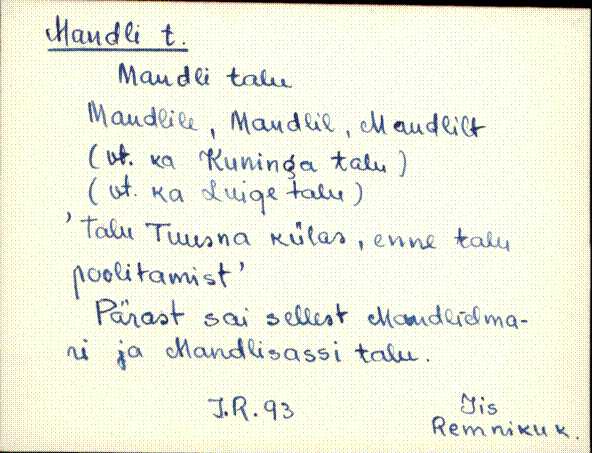 Mandli t.
Mandli talu
Mandlile, Mandlil, Mandlilt
(vt. ka Kuninga talu)
(vt. ka Luige talu)
'Talu Tuusna külas, enne talu
poolitamist'
Pärast sai sellest Mandlidma-
ri ja Mandlisassi talu.
J.R. 93
Iis
Remnikuk.